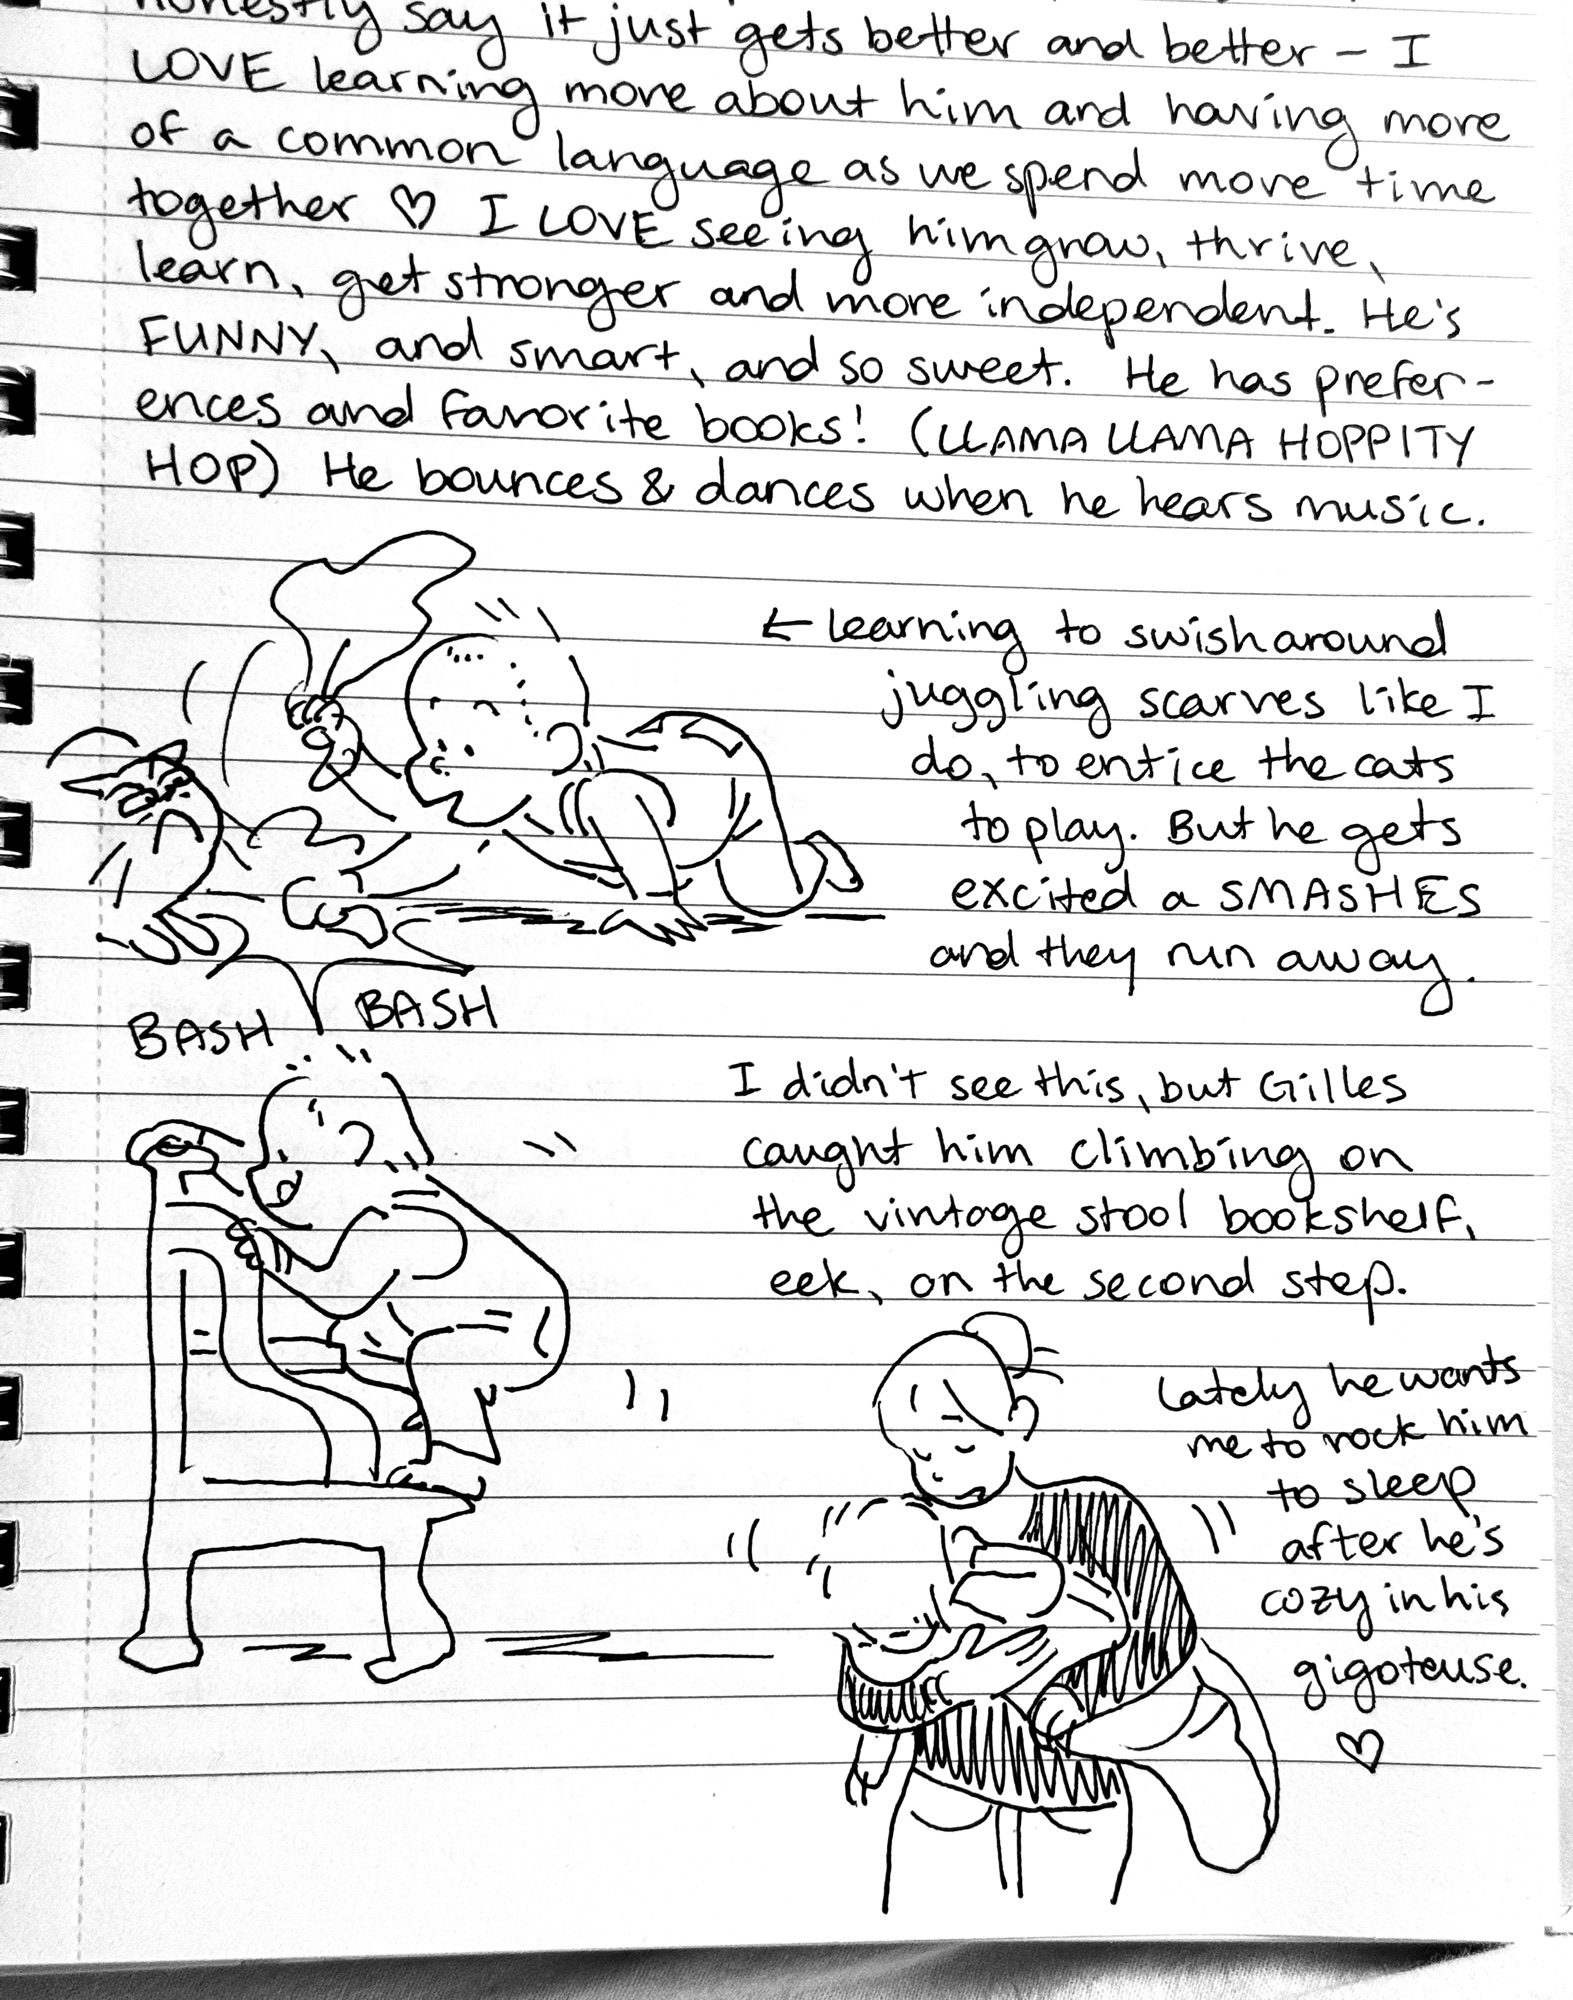 honestly say it just gets better and better – I
LOVE learning more about him and having more
of a common language as we spend more time
together ♡ I LOVE seeing him grow, thrive,
learn, get stronger and more independent. He's
FUNNY, and smart, and so sweet. He has prefer-
ences and favorite books! (LLAMA LLAMA HOPPITY
HOP) He bounces & dances when he hears music.
← learning to swish around
juggling scarves like I
do, to entice the cats
to play. But he gets
excited a SMASHES
and they run away.
BASH BASH
I didn't see this, but Gilles
caught him climbing on
the vintage stool bookshelf,
eek, on the second step.
Lately he wants
me to rock him
to sleep
after he's
cozy in his
gigoteuse.
♡